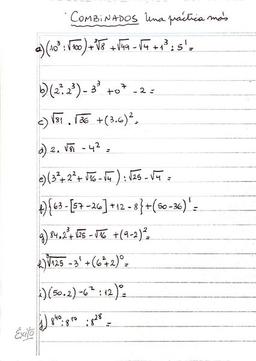 COMBINADOS Una práctica más
a) (10³ : √100) + ³√8 + √49 - √4 + 1³ : 5¹ =
b) (2² . 2³) - 3³ + 0⁷ - 2 =
c) √81 . √36 + (3.6)² =
d) 2 . √81 - 4² =
e) (3² + 2² + √16 - √4) : √25 - √4 =
f) {63 - [57 - 26] + 12 - 8} + (50 - 36)¹ =
g) 84 . 2³ + √25 - √16 + (9 - 2)² =
h) ³√125 - 3¹ + (6² + 2)⁰ =
i) (50 . 2) - 6² : 12)⁰ =
j) 8⁴⁰ : 8¹⁰ : 8²⁸ =
Éxito